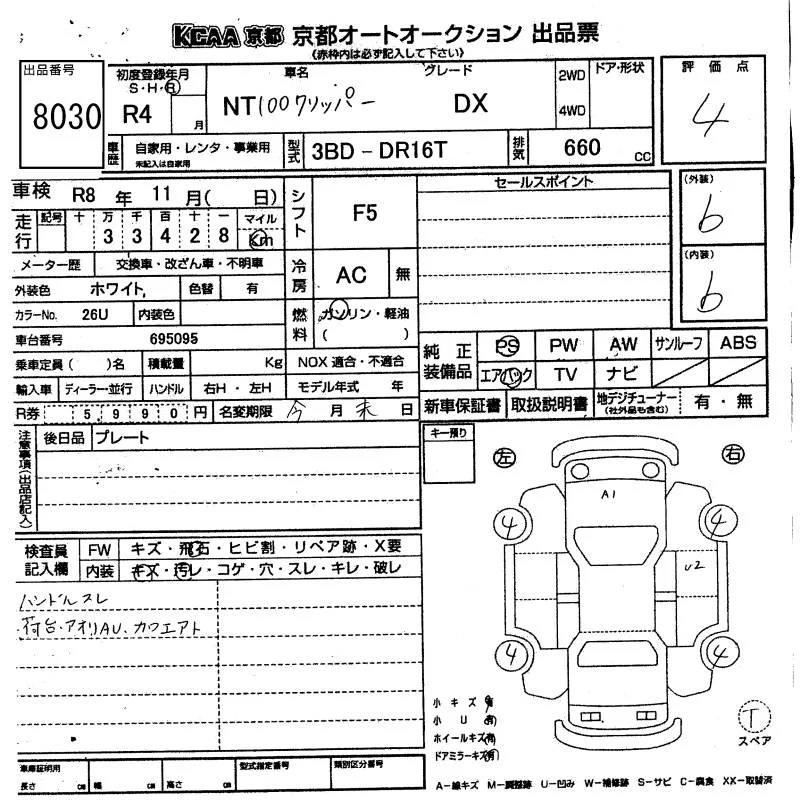 KCAA 京都 京都オートオークション 出品票
(赤枠内は必ず記入して下さい)
出品番号 8030
初度登録年月 S・H・R R4 月
車名 NT100クリッパー
グレード DX
2WD 4WD
ドア・形状
評価点 4
車歴 自家用・レンタ・事業用 未記入は自家用
型式 3BD-DR16T
排気 660 cc
車検 R8 年 11 月( 日)
シフト F5
セールスポイント
(外装) b
(内装) b
走行 記号 十 万 千 百 十 一 マイル
3 3 4 2 8 Km
メーター歴 交換車・改ざん車・不明車
冷房 AC 無
外装色 ホワイト, 色替 有
カラーNo. 26U 内装色
燃料 ガソリン・軽油 ( )
車台番号 695095
乗車定員( )名 積載量 Kg NOX 適合・不適合
輸入車 ディーラー・並行 ハンドル 右H・左H モデル年式 年
R券 5990円 名変期限 今 月 末 日
純正装備品 PS PW AW サンルーフ ABS
エアバック TV ナビ
新車保証書 取扱説明書 地デジチューナー (社外品も含む) 有・無
注意事項(出品店記入)
後日品 プレート
キー預り
左 右
A1
4 4
U2
4 4
検査員記入欄 FW キズ・飛石・ヒビ割・リペア跡・X要
内装 キズ・汚レ・コゲ・穴・スレ・キレ・破レ
ハンドルスレ
荷台・アオリAU、カウエアト
小キズ 有
小U 有
ホイールキズ 有
ドアミラーキズ 有
T
スペア
車庫証明用 長さ cm 幅 cm 高さ cm
型式指定番号 類別区分番号
A-線キズ M-調整跡 U-凹み W-補修跡 S-サビ C-腐食 XX-取替済